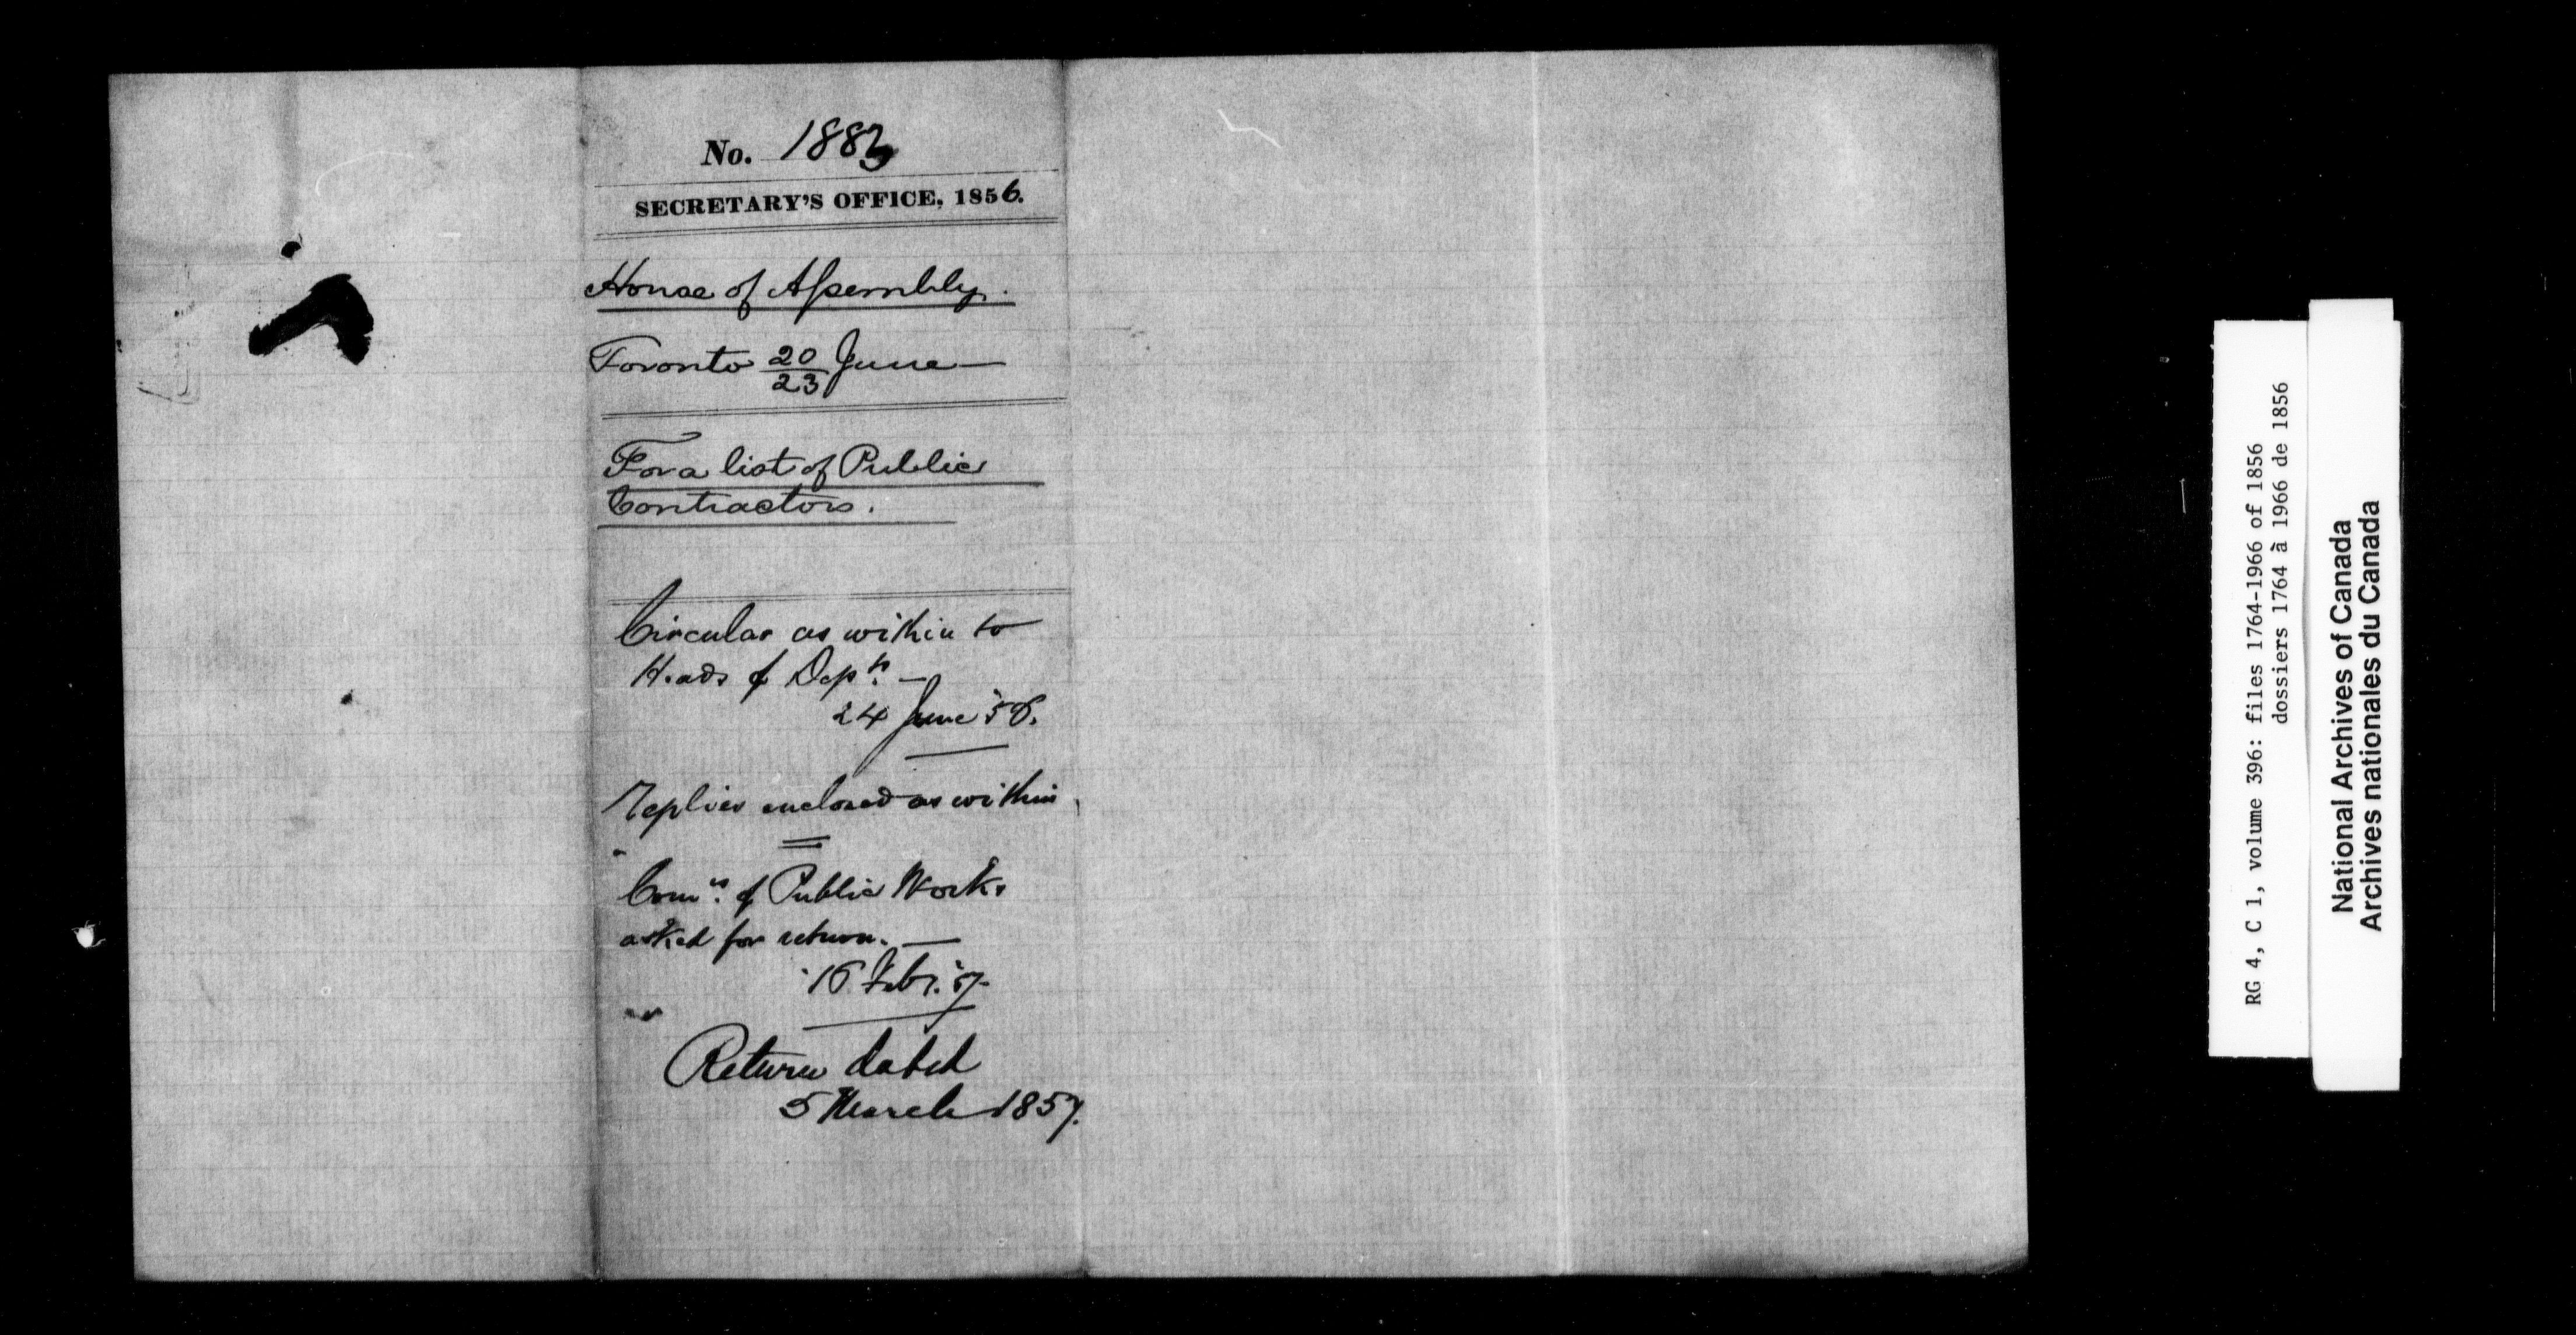 No. 1883
SECRETARY'S OFFICE, 1856.
House of Assembly.
Toronto 20/23 June—
For a list of Public
Contractors.
Circular as within to
Heads of Depts. —
24 June '56.
Replies enclosed as within
Comrs. of Public Works
asked for return. —
16 Feby. '57
Return dated
5 March 1857.
RG 4, C 1, volume 396: files 1764-1966 of 1856
dossiers 1764 à 1966 de 1856
National Archives of Canada
Archives nationales du Canada